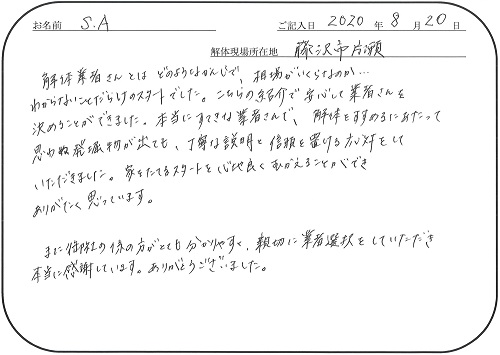 お名前 S.A ご記入日 2020 年 8 月 20 日
解体現場所在地 藤沢市片瀬
解体業者さんとは どのようなかんじで、相場がいくらなのか…
わからないことだらけのスタートでした。こちらの紹介で安心して業者さんを
決めることができました。本当にすてきな業者さんで、解体をすすめるにあたって
思わぬ発掘物が出ても、丁寧な説明と信頼を置ける対応をして
いただきました。家をたてるスタートを心地良くむかえることができ
ありがたく思っています。
また御社の係の方がとても分かりやすく、親切に業者選択をしていただき
本当に感謝しています。ありがとうございました。